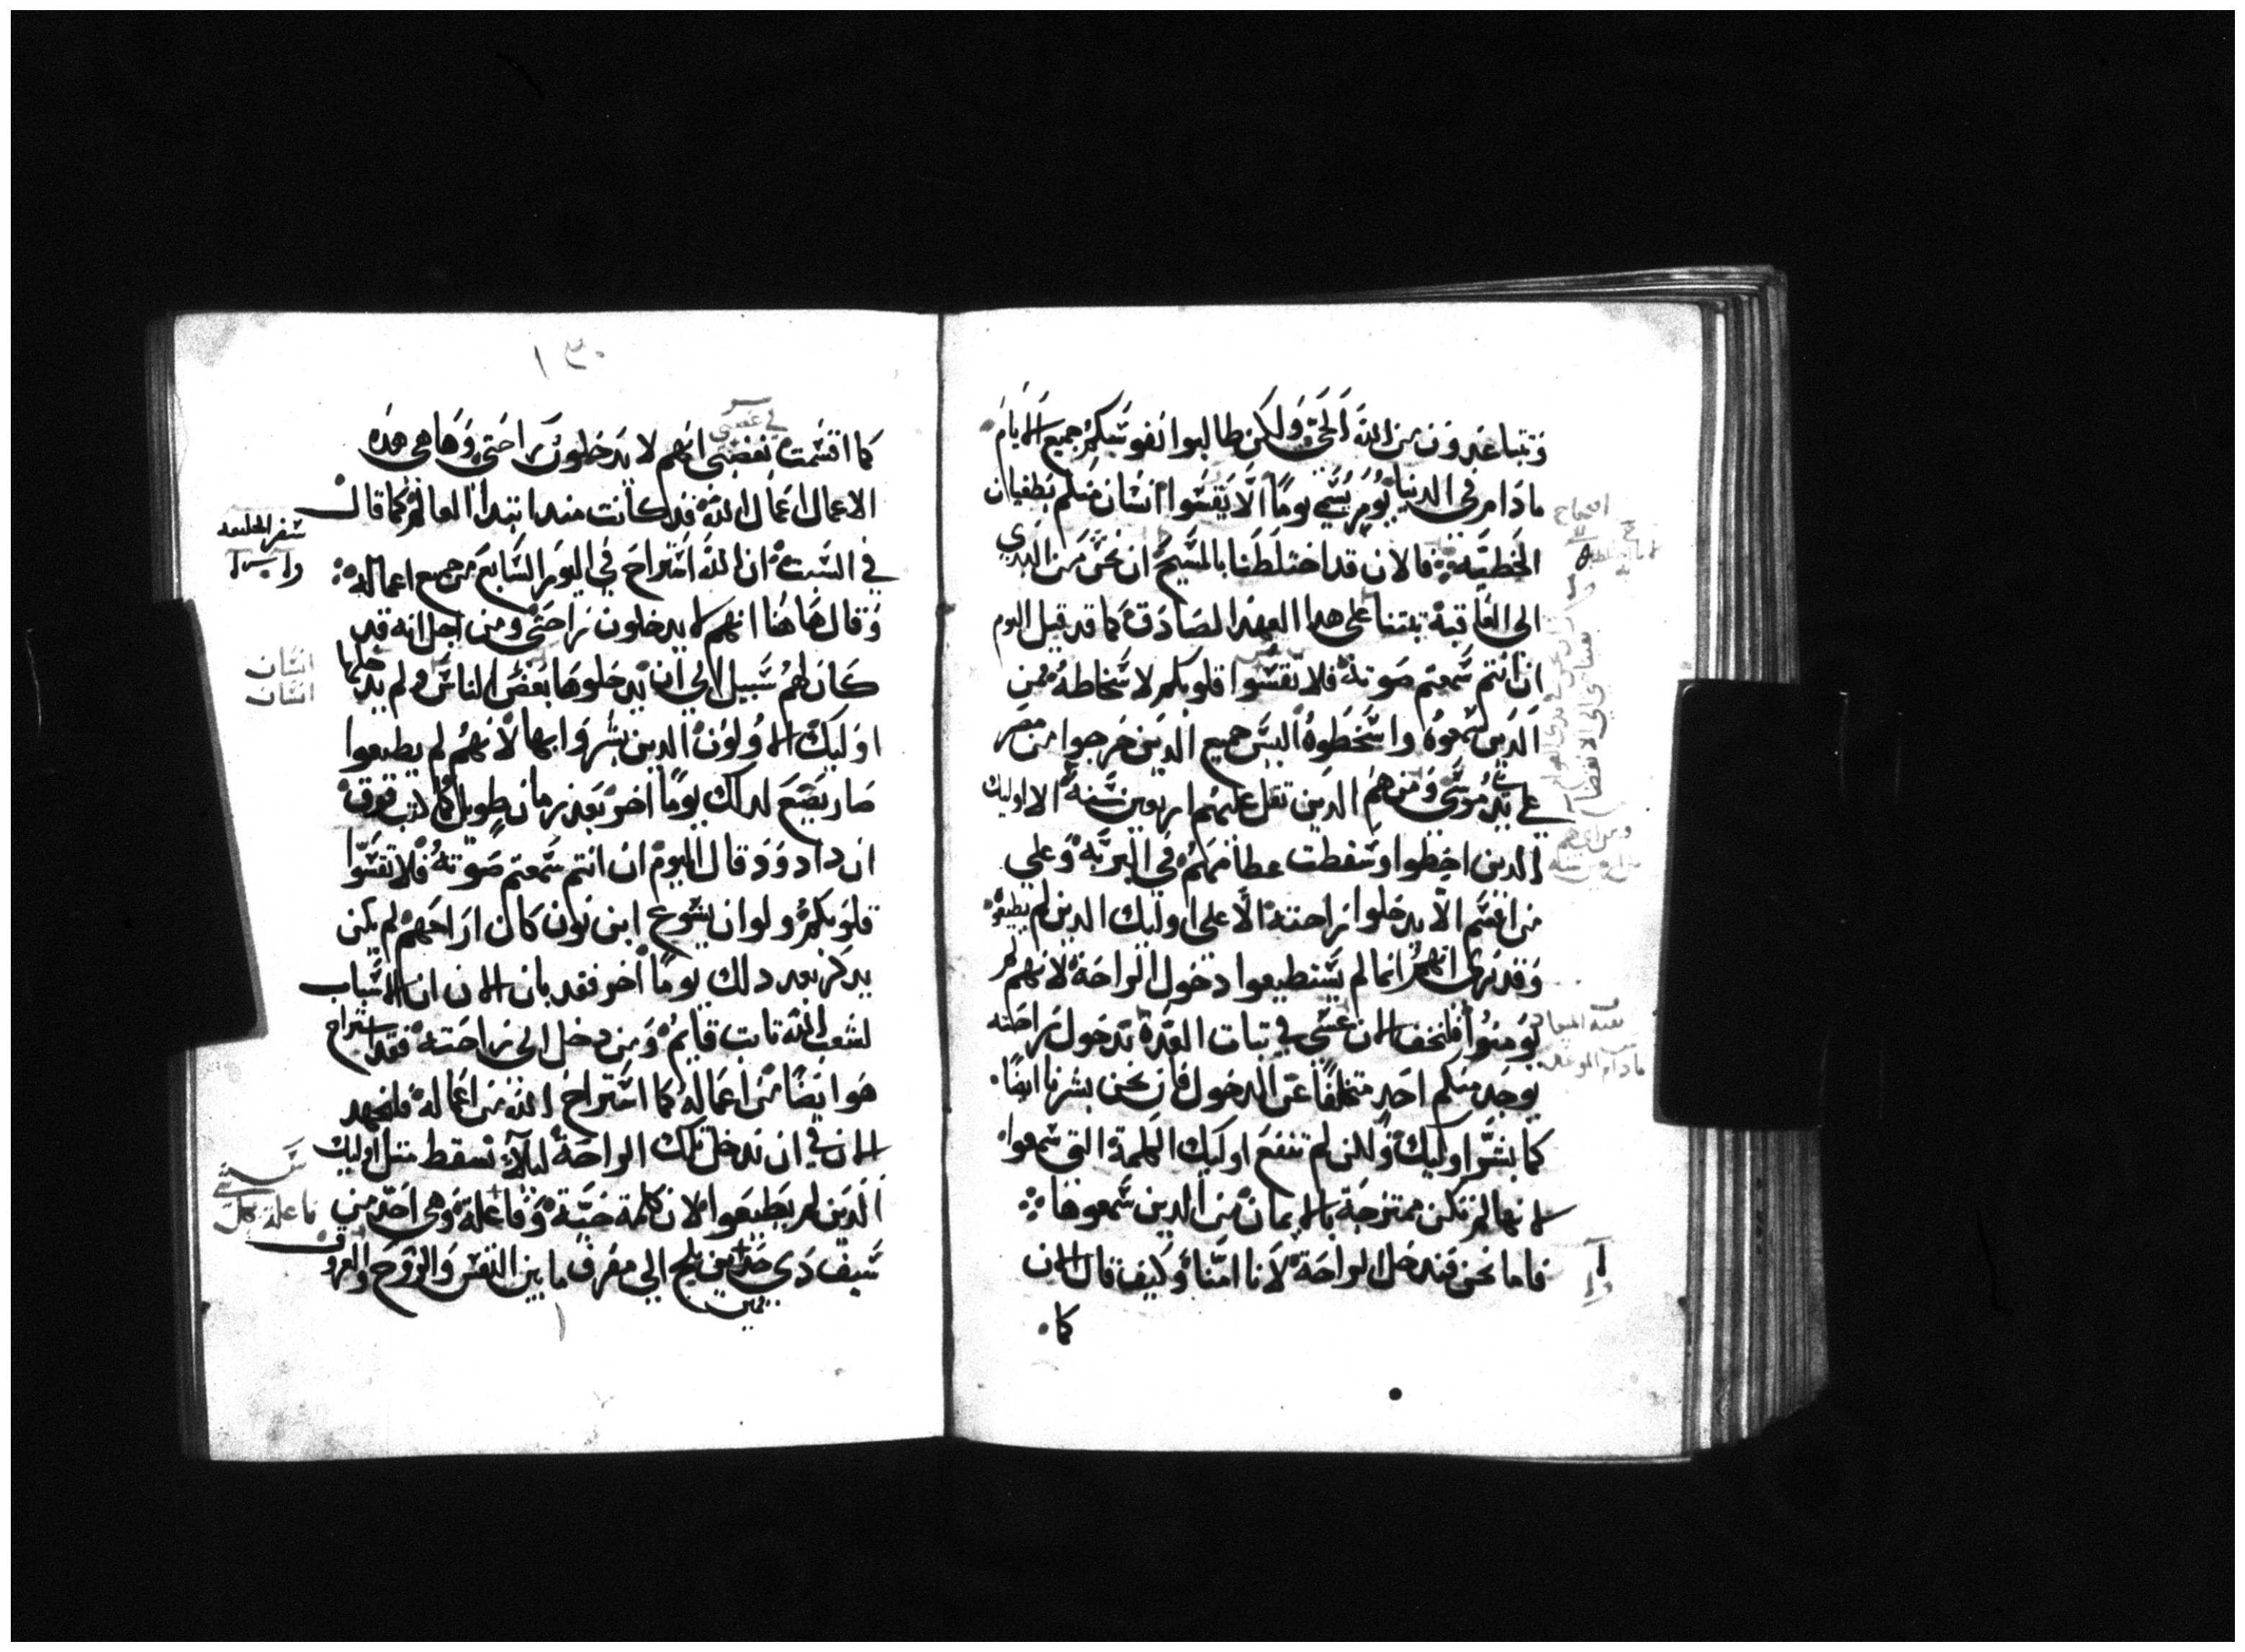 وتتباعدون من الله الحي ولكن طالبوا نفوسكم جميع الايام
ما دام في الدنيا يوم يسمي يوما الا يقسوا انسان منكم بطغيان
الخطية فالان قد اختلطنا بالمسيح ان نحن من البدي
الي العاقبة تبتنا علي هدا العهد الصادق كما قد قيل اليوم
ان انتم سمعتم صوته فلا تقسوا قلوبكم لاسخاطه فمن
الدين سمعوه واسخطوه اليس جميع الدين خرجوا من مصر
علي يد موسي ومن هم الدين تقل عليهم اربعين سنة الا اوليك
الدين اخطوا وسقطت عظامهم في البرية وعلي
من اقسم الا يدخلوا راحته الا علي اوليك الدين لم يطيعوه
وقد نري انهم انما لم يستطيعوا دخول الراحة لانهم لم
يومنوا فلنخف الان عسي في تبات العدة بدخول راحته
يوجد منكم احد متخلفا عن الدخول فان نحن بشرنا ايضا
كما بشر اوليك ولكن لم تنفع اوليك الكلمة التي سمعوا
لانها لم تكن ممتزجة بالايمان من الدين سمعوها
فاما نحن فندخل الراحة لانا امنا وكيف قال الان
كما
١٣٠
كما اقسمت بغضبي انهم لا يدخلون راحتي وها هي هده
الاعمال اعمال الله قد كانت مند ابتدا العالم كما قال
في السبت ان الله استراح في اليوم السابع من جميع اعماله
وقال هاهنا انهم لا يدخلون راحتي ومن اجل انه قد
كان لهم سبيل الي ان يدخلوها بعض الناس ولم يدخلها
اوليك الاولون الدين بشروا بها لانهم لم يطيعوا
صار يضع لدلك يوما اخر بعد زمان طويل كما كتب فوق
ان داوود قال اليوم ان انتم سمعتم صوته فلا تقسوا
قلوبكم ولو ان يشوع ابن نون كان اراحهم لم يكن
يدكر بعد دلك يوما اخر فقد بان الان ان الاسبات
لشعب الله تابت قايم ومن دخل الي راحته فقد استراح
هو ايضا من اعماله كما استراح الله من اعماله فلنجهد
الان في ان ندخل تلك الراحة ليلا نسقط متل اوليك
الدين لم يطيعوا لان كلمة حية وفاعلة وهي احد من
سيف دي حدين يلج الي مفرق ما بين النفس والروح والعروق
سفر الخليقة
انسان
انسان